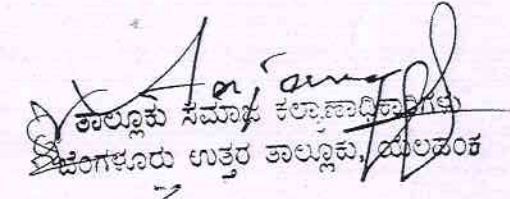 ತಾಲ್ಲೂಕು ಸಮಾಜ ಕಲ್ಯಾಣಾಧಿಕಾರಿಗಳು
ಬೆಂಗಳೂರು ಉತ್ತರ ತಾಲ್ಲೂಕು, ಯಲಹಂಕ